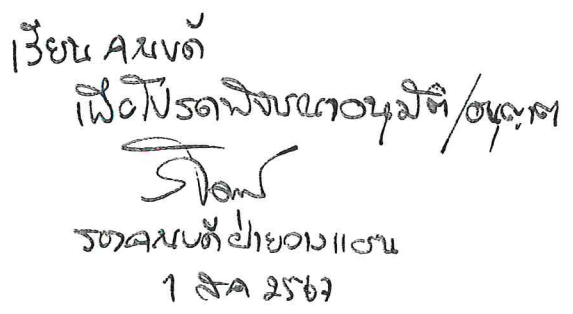 เรียน คณบดี
เพื่อโปรดพิจารณาอนุมัติ/อนุญาต
รองคณบดีฝ่ายวางแผน
1 สค 2567